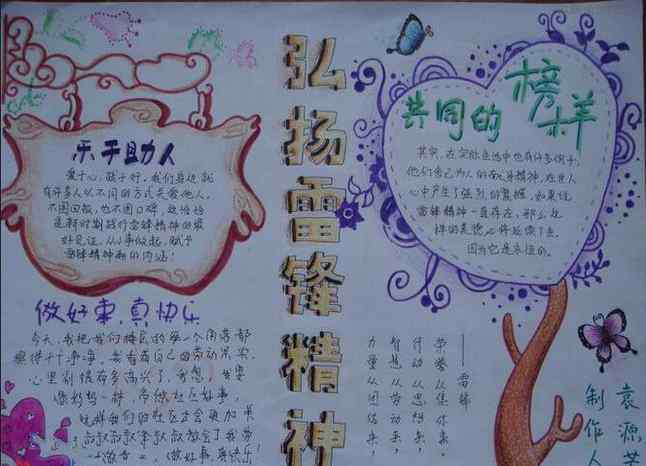 弘扬雷锋精神
乐于助人
爱于心，践于行，我们身边就
有许多人以不同的方式关爱他人，
不图回报，也不图口碑，这恰恰
是新时期践行雷锋精神的最
好见证，从小事做起，赋予
雷锋精神新的内涵！
做好事，真快乐
今天，我把我们楼房的每一个角落都
擦得干干净净，
看着自己的劳动果实，
心里别提有多高兴了，我想，我要
像妈妈一样，
这样我们的社区才会更加
做好事，真快乐！
共同的
榜样
其实，在实际生活中也有许多例子，
他们舍己为人的
精神，在世人
心中产生了强烈的震撼，如果说
雷锋精神一直存在，那么这
样的美德必将延续下去，
因为它是永恒的。
——雷锋
荣誉从集体来，
行动从思想来，
智慧从劳动来，
力量从团结来，
制作人
袁源